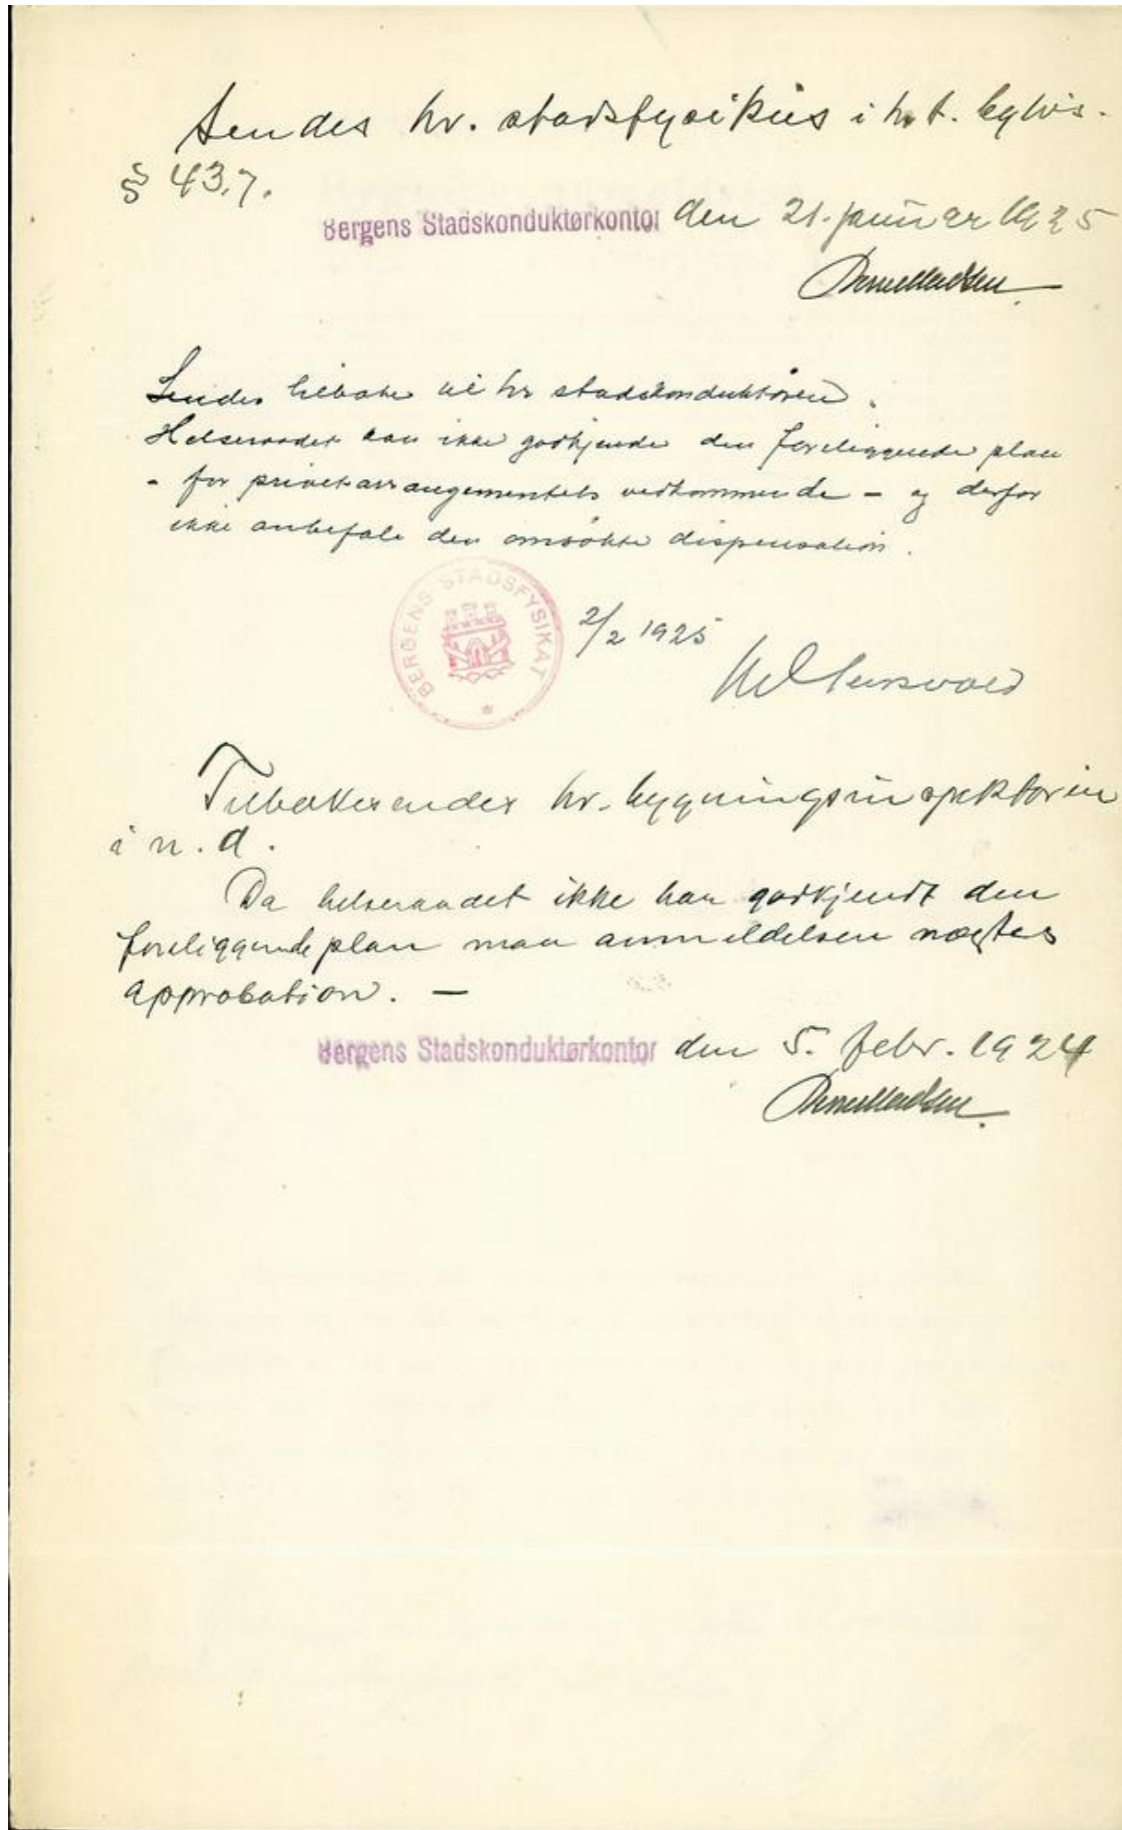 Sendes hr. stadsfysikus i h. t. bglvs.
§ 43,7.
Bergens Stadskonduktørkontor den 21. januar 1925
Sendes tilbake til hr stadskonduktøren.
Helseraadet kan ikke godkjende den foreliggende plan
- for privetarrangementets vedkommende - og derfor
ikke anbefale den omsøkte dispensation.
BERGENS STADSFYSIKAT
2/2 1925
Tilbakesendes hr. bygningsinspektøren
i n. d.
Da helseraadet ikke har godkjendt den
foreliggende plan maa anmeldelsen nægtes
approbation. —
Bergens Stadskonduktørkontor den 5. febr. 1924